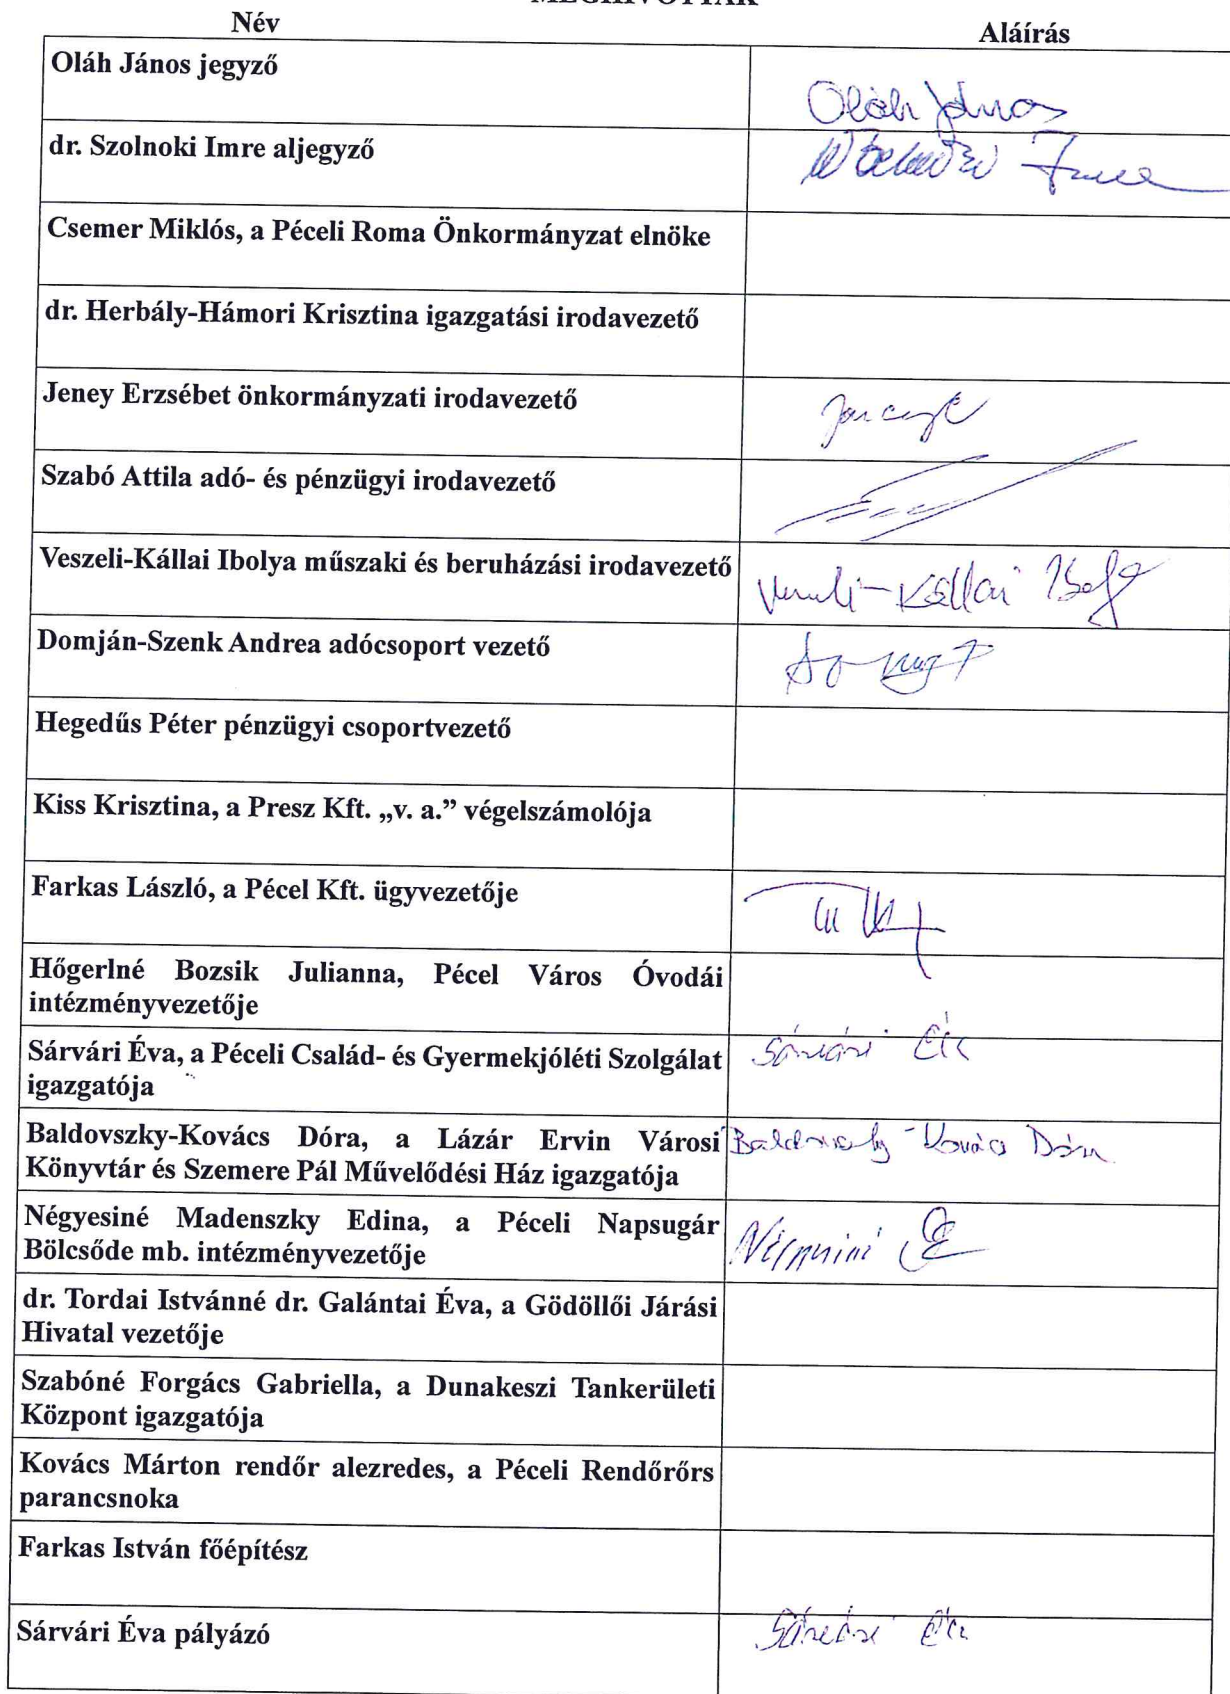 MEGHÍVOTTAK
Név Aláírás
Oláh János jegyző
Oláh János
dr. Szolnoki Imre aljegyző
Imre
Csemer Miklós, a Péceli Roma Önkormányzat elnöke
dr. Herbály-Hámori Krisztina igazgatási irodavezető
Jeney Erzsébet önkormányzati irodavezető
Szabó Attila adó- és pénzügyi irodavezető
Veszeli-Kállai Ibolya műszaki és beruházási irodavezető
Veszeli-Kállai Ibolya
Domján-Szenk Andrea adócsoport vezető
Hegedűs Péter pénzügyi csoportvezető
Kiss Krisztina, a Presz Kft. „v. a.” végelszámolója
Farkas László, a Pécel Kft. ügyvezetője
Hőgerlné Bozsik Julianna, Pécel Város Óvodái
intézményvezetője
Sárvári Éva, a Péceli Család- és Gyermekjóléti Szolgálat
igazgatója
Sárvári Éva
Baldovszky-Kovács Dóra, a Lázár Ervin Városi
Könyvtár és Szemere Pál Művelődési Ház igazgatója
Baldovszky-Kovács Dóra
Négyesiné Madenszky Edina, a Péceli Napsugár
Bölcsőde mb. intézményvezetője
Négyesiné
dr. Tordai Istvánné dr. Galántai Éva, a Gödöllői Járási
Hivatal vezetője
Szabóné Forgács Gabriella, a Dunakeszi Tankerületi
Központ igazgatója
Kovács Márton rendőr alezredes, a Péceli Rendőrőrs
parancsnoka
Farkas István főépítész
Sárvári Éva pályázó
Sárvári Éva